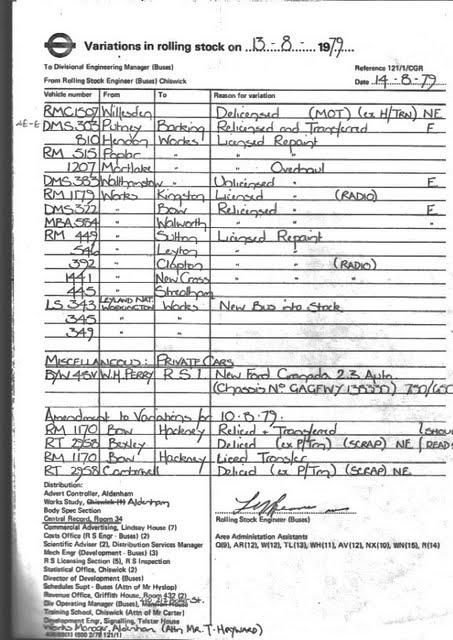 Variations in rolling stock on 13-8- 1979.
To Divisional Engineering Manager (Buses) Reference 121/1/CGR
From Rolling Stock Engineer (Buses) Chiswick Date 14-8-79
Vehicle number From To Reason for variation
RMC1507 Willesden Delicensed (MOT) (ex H/TRN) NE
AE-E DMS 303 Putney Barking Relicensed and Transferred E
810 Hendon Works Licensed Repaint
RM 515 Poplar " " "
1207 Mortlake " " Overhaul
DMS 383 Walthamstow " Unlicensed " E
RM 1179 Works Kingston Licensed " (RADIO)
DMS 322 " Bow Relicensed " E
MBA 584 " Walworth " " "
RM 449 " Sutton Licensed Repaint
546 " Leyton " "
392 " Clapton " " (RADIO)
1441 " New Cross " "
445 " Streatham " "
LS 343 LEYLAND NAT. WORKINGTON Works New Bus into Stock
345 " " "
349 " " "
MISCELLANEOUS: PRIVATE CARS
BYW 45V W.H. PERRY R S I New Ford Granada 2.3 Auto.
(Chassis No GAGEWY 138350) 750/650
Amendment to Variations for 10.8.79.
RM 1170 Bow Hackney Reliced + Transferred (SHOU
RT 2958 Bexley Deliced (ex P/Trn) (SCRAP) NE READ
RM 1170 Bow Hackney Liced Transfer
RT 2958 Camberwell Deliced (ex P/Trn) (SCRAP) NE
Distribution:
Advert Controller, Aldenham
Works Study, Chiswick (1) Aldenham
Body Spec Section
Central Record, Room 34
Commercial Advertising, Lindsay House (7)
Rolling Stock Engineer (Buses)
Costs Office (R S Engr - Buses) (2)
Scientific Adviser (2), Distribution Services Manager
Area Administation Assistants
Mech Engr (Development - Buses) (3)
Q(9), AR(12), W(12), TL(13), WH(11), AV(12), NX(10), WN(15), R(14)
R S Licensing Section (5), R S Inspection
Statistical Office, Chiswick (2)
Director of Development (Buses)
Schedules Supt - Buses (Attn of Mr Hyslop)
Revenue Office, Griffith House, Room 432 (2)
Div Operating Manager (Buses)
Training School, Chiswick (Attn of Mr Carter)
Development Engr, Signalling, Telstar House
Works Manager, Aldenham (Attn Mr. T. Hayward)